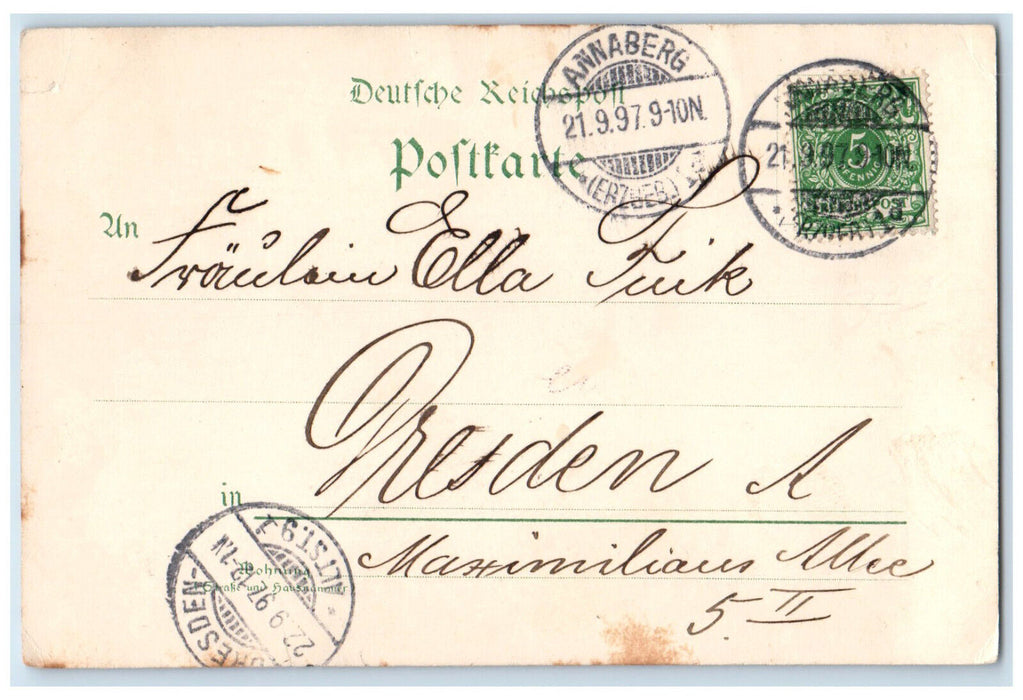 Deutsche Reichspost
Postkarte
ANNABERG
21.9.97.9-10N.
(ERZGEB.)
ANNABERG
21.9.97.9-10N.
5
PFENNIG
An
Fräulein Ella
Dresden A
in
Maximilians Allee
5. II
Wohnung
(Straße und Hausnummer)
DRESDEN-ALTST.9
22.9.97.